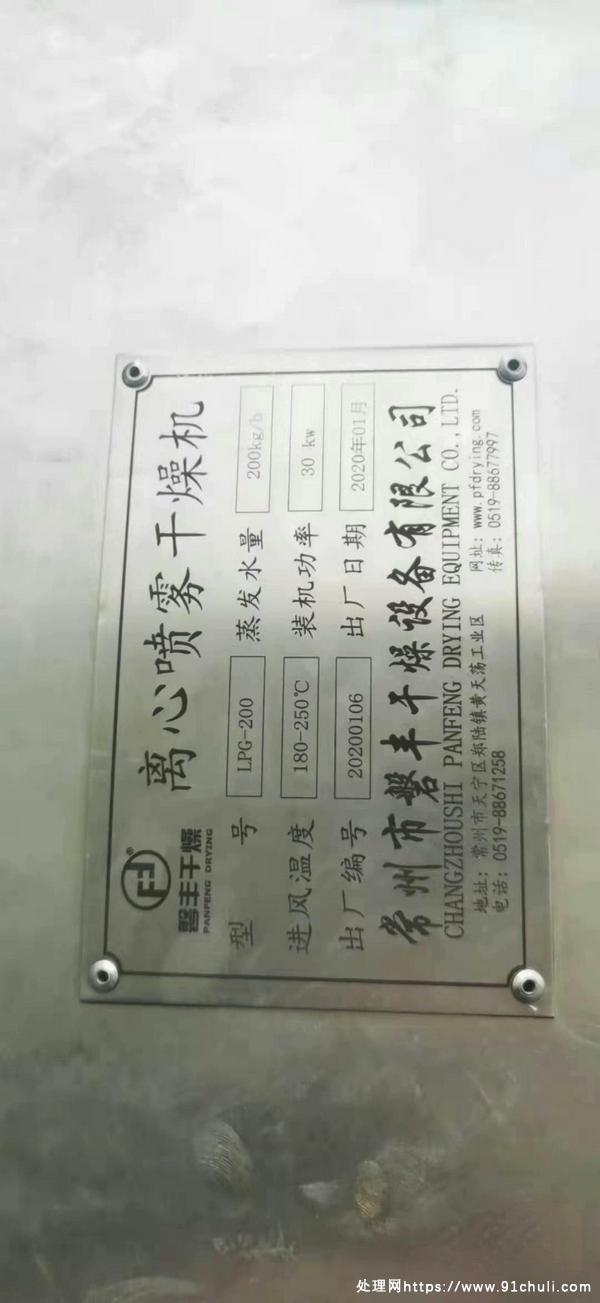 磐丰干燥
PANFENG DRYING
离心喷雾干燥机
型号 LPG-200 蒸发水量 200kg/h
进风温度 180-250℃ 装机功率 30 kw
出厂编号 20200106 出厂日期 2020年01月
常州市磐丰干燥设备有限公司
CHANGZHOUSHI PANFENG DRYING EQUIPMENT CO.,LTD.
地址：常州市天宁区郑陆镇黄天荡工业区 网址：www.pfdrying.com
电话：0519-88671258 传真：0519-88677997
处理网https://www.91chuli.com